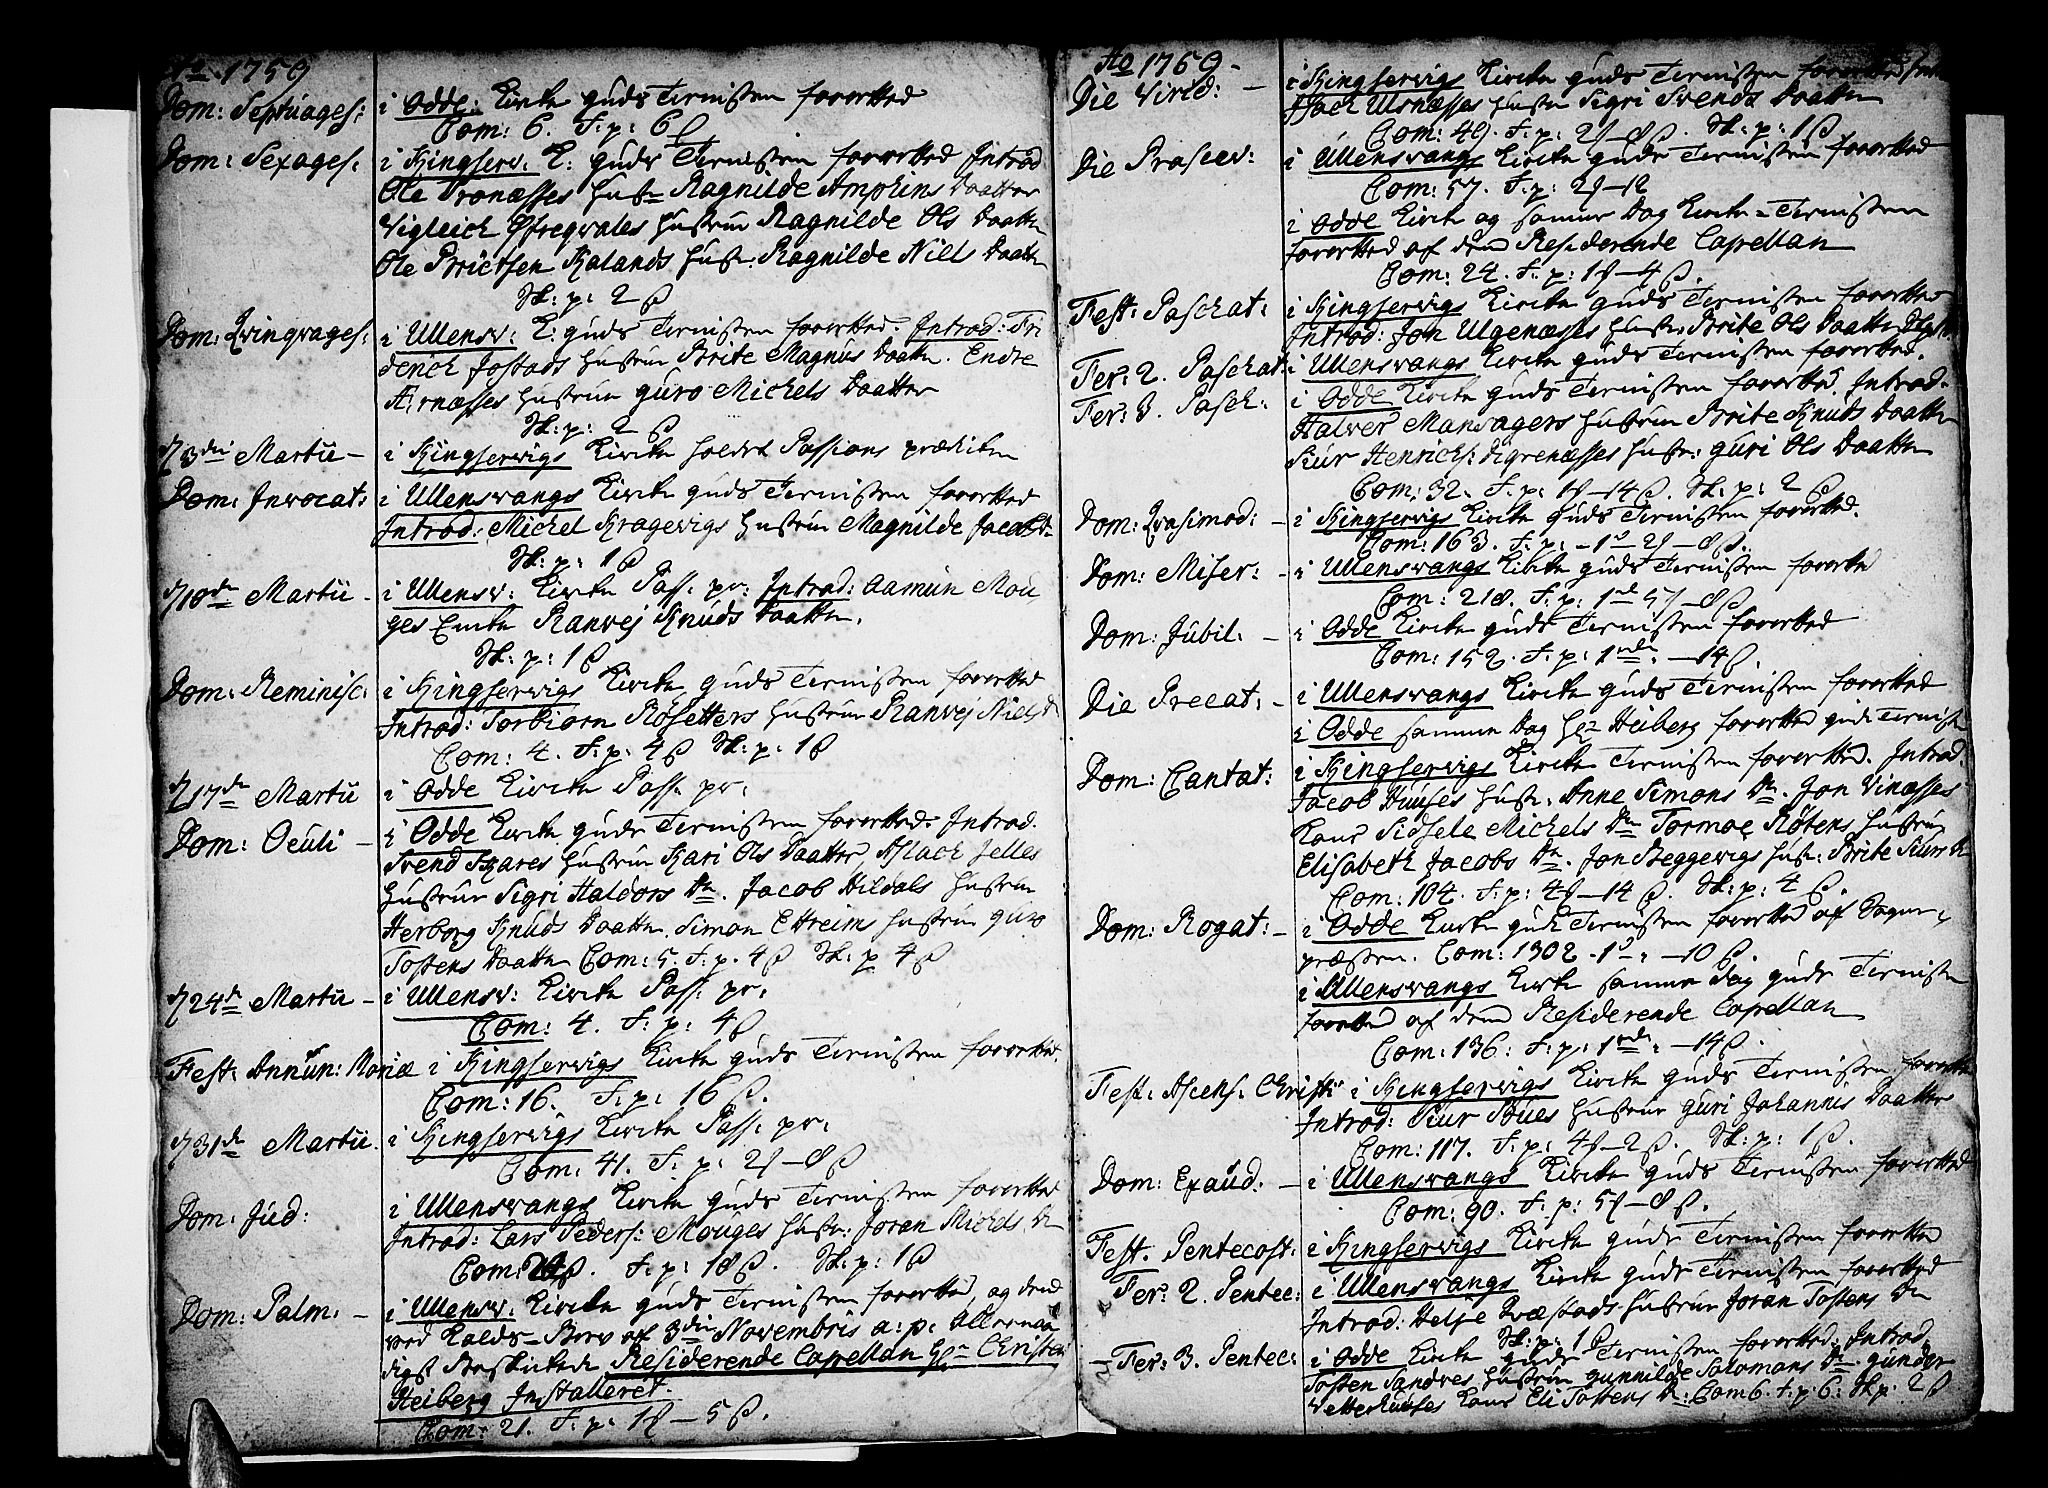 Ao 1759
Dom: Septuages: i Odde: Kircke Guds Tienisten forretted
Com: 6. F: p: 6 ß
Dom: Sexages: i Kingserv: K: Guds Tienisten forretted Introd
Ole Tronæsses Hustr Ragnilde Ampkins Daatter
Vigleich Hustrue Ragnilde Ols Daatter
Ole Kalands Hustr: Ragnilde Niels Daatter
Sk: p: 2 ß
Dom: Qvinqvages: i Ullensv: K: Guds Tienisten forretted. Introd: Fri
derich Jostads Hustrue Brite Magnus Daatter. Endre
Hustrue Guro Michels Daatter
Sk: p: 2 ß
d 3die Martii – i Kingservigs Kircke holdet Passions prædiken
Dom: Invocat: i Ullensvangs Kircke Guds Tienisten forretted
Introd: Michel Kragevigs Hustrue Magnilde Jacobs D
Sk: p: 1 ß
d 10de Martii – i Ullensv: Kircke Pass: pr: Introd: Aamun Mou
ges Encke Ranvej Knuds Daatter.
Sk: p: 1 ß
Dom: Reminisc: i Kingservigs Kircke Guds Tienisten forretted
Introd: Torbiorn Røsetters Hustrue Ranvej Niels D
Com: 4. F: p: 4 ß Sk: p: 1 ß
d 17de Martii i Odde Kircke Pass: pr:
Dom: Oculi – i Odde Kircke Guds Tienisten forretted. Introd.
Svend Skares Hustrue Kari Ols Daatter, Aslach Jelles
Hustrue Sigri Haldors Dr. Jacob Hildals Hustrue
Herborg Knuds Daatter. Simon Ettreims Hustrue Guro
Tostens Daatter Com: 5. F: p. 4 ß Sk: p 4 ß
d 24de Martii – i Ullensv: Kircke Pass: pr:
Com: 4. F: p: 4 ß
Fest: Annun: Mariæ i Kingservigs Kircke Guds Tienisten forrettet.
Com: 16. F: p: 16 ß.
d 31de Martii. i Kingservigs Kircke Pass: pr:
Com: 41. F: p: 2 – 8 ß
Dom: Jud: i Ullensvangs Kircke Guds Tienisten forrettet
Introd: Lars Peders: Mouges Hustr: Joran Michels Dr
Com: F: p: 18 ß. Sk: p: 1 ß
Dom: Palm: – i Ullensv: Kircke Guds Tienisten forrettet, og dend
ved Kalds-Brev af 3die Novembris a: p: Allernaa
digst Beskickede Residerende Capellan Hr Christen
Heiberg Installeret.
Com: 21. F: p: 1 – 5 ß.
Ao 1769 –
Die Virid: – i Kingservigs Kircke Guds Tienisten forrettet Intr
Isach Hustr Sigri Svends Daatter
Com: 49. F: p: 2 – 8 ß. Sk: p: 1 ß
Die Parascev: i Ullensvangs Kircke Guds Tienisten forrettet
Com: 57. F: p: 2 – 12
i Odde Kircke og samme Dag Kircke-Tienisten
forrettet af dend Residerende Capellan
Com: 24. F: p: 1 – 4 ß.
Fest: Paschat: i Kingservigs Kircke Guds Tienisten forrettet
Introd: Jon Ulgenæsses Hustr: Brite Ols Daatter
Fer: 2. Paschat: i Ullensvangs Kircke Guds Tienisten forrettet.
Fer: 3. Pasch: i Odde Kircke Guds Tienisten forrettet. Introd.
Halver Mansagers Hustrue Brite Knuds Daatter
Siur Henrichs: Digrenæsses Hustr: Guri Ols Daatter
Com: 32. F: p: 1 – 14 ß. Sk: p: 2 ß
Dom: Qvasimod: – i Kingservigs Kircke Guds Tienisten forrettet.
Com: 163. F: p: – 1 – 2 – 8 ß.
Dom: Miser: – i Ullensvangs Kircke Guds Tienisten forrettet
Com: 218. F: p: 1rd 5 – 8 ß
Dom: Jubil: – i Odde Kircke Guds Tienisten forrettet
Com: 152. F: p: 1rd: – 14 ß.
Die Precat: – i Ullensvangs Kircke Guds Tienisten forrettet
i Odde samme Dag Hr Heiberg forrettet Guds Tienist
Dom: Cantat: i Kingservigs Kircke Tienisten forrettet. Introd.
Jacob Huuses Hustr: Anne Simons Dr. Jon Vinæsses
Kone Sidsele Michels Dr Tormoe Røtens Hustrue
Elisabeth Jacobs Dr. Jon Beggevigs Hustr: Brite Siurs Dr
Com: 104. F: p: 4 – 14 ß. Sk: p: 4 ß.
Dom: Rogat: – i Odde Kircke Guds Tienisten forrettet af Sogne-
præsten. Com: 1302 – 1: – 10 ß.
i Ullensvangs Kircke samme Dag Guds Tienisten
forrettet af dend Residerende Capellan
Com: 136: F: p: 1rd: – 14 ß.
Fest: Ascens: Christi i Kingservigs Kircke Guds Tienisten forrettet
Introd: Siur Bues Hustrue Guri Johannis Daatter
Com: 117. F: p: 4 – 2 ß. Sk: p: 1 ß.
Dom: Exaud: – i Ullensvangs Kircke Guds Tienisten forrettet
Com: 90. F: p: 5 – 8 ß.
Fest. Pentecost: i Kingservigs Kircke Guds Tienisten forrettet
Fer: 2. Pentec: i Ullensvangs Kircke Guds Tienisten forrettet
Introd: Helje Hustrue Joran Tostens Dr
Sk: p: 1 ß
– Fer: 3. Pentec: i Odde Kircke Guds Tienisten forrettet. Introd.
Tosten Sandves Hustrue Gunnilde Salomons Dr. Gunder
Vetterhuuses Kone Eli Tostens Dr: Com 6. F. p: 6: Sk p: 2 ß